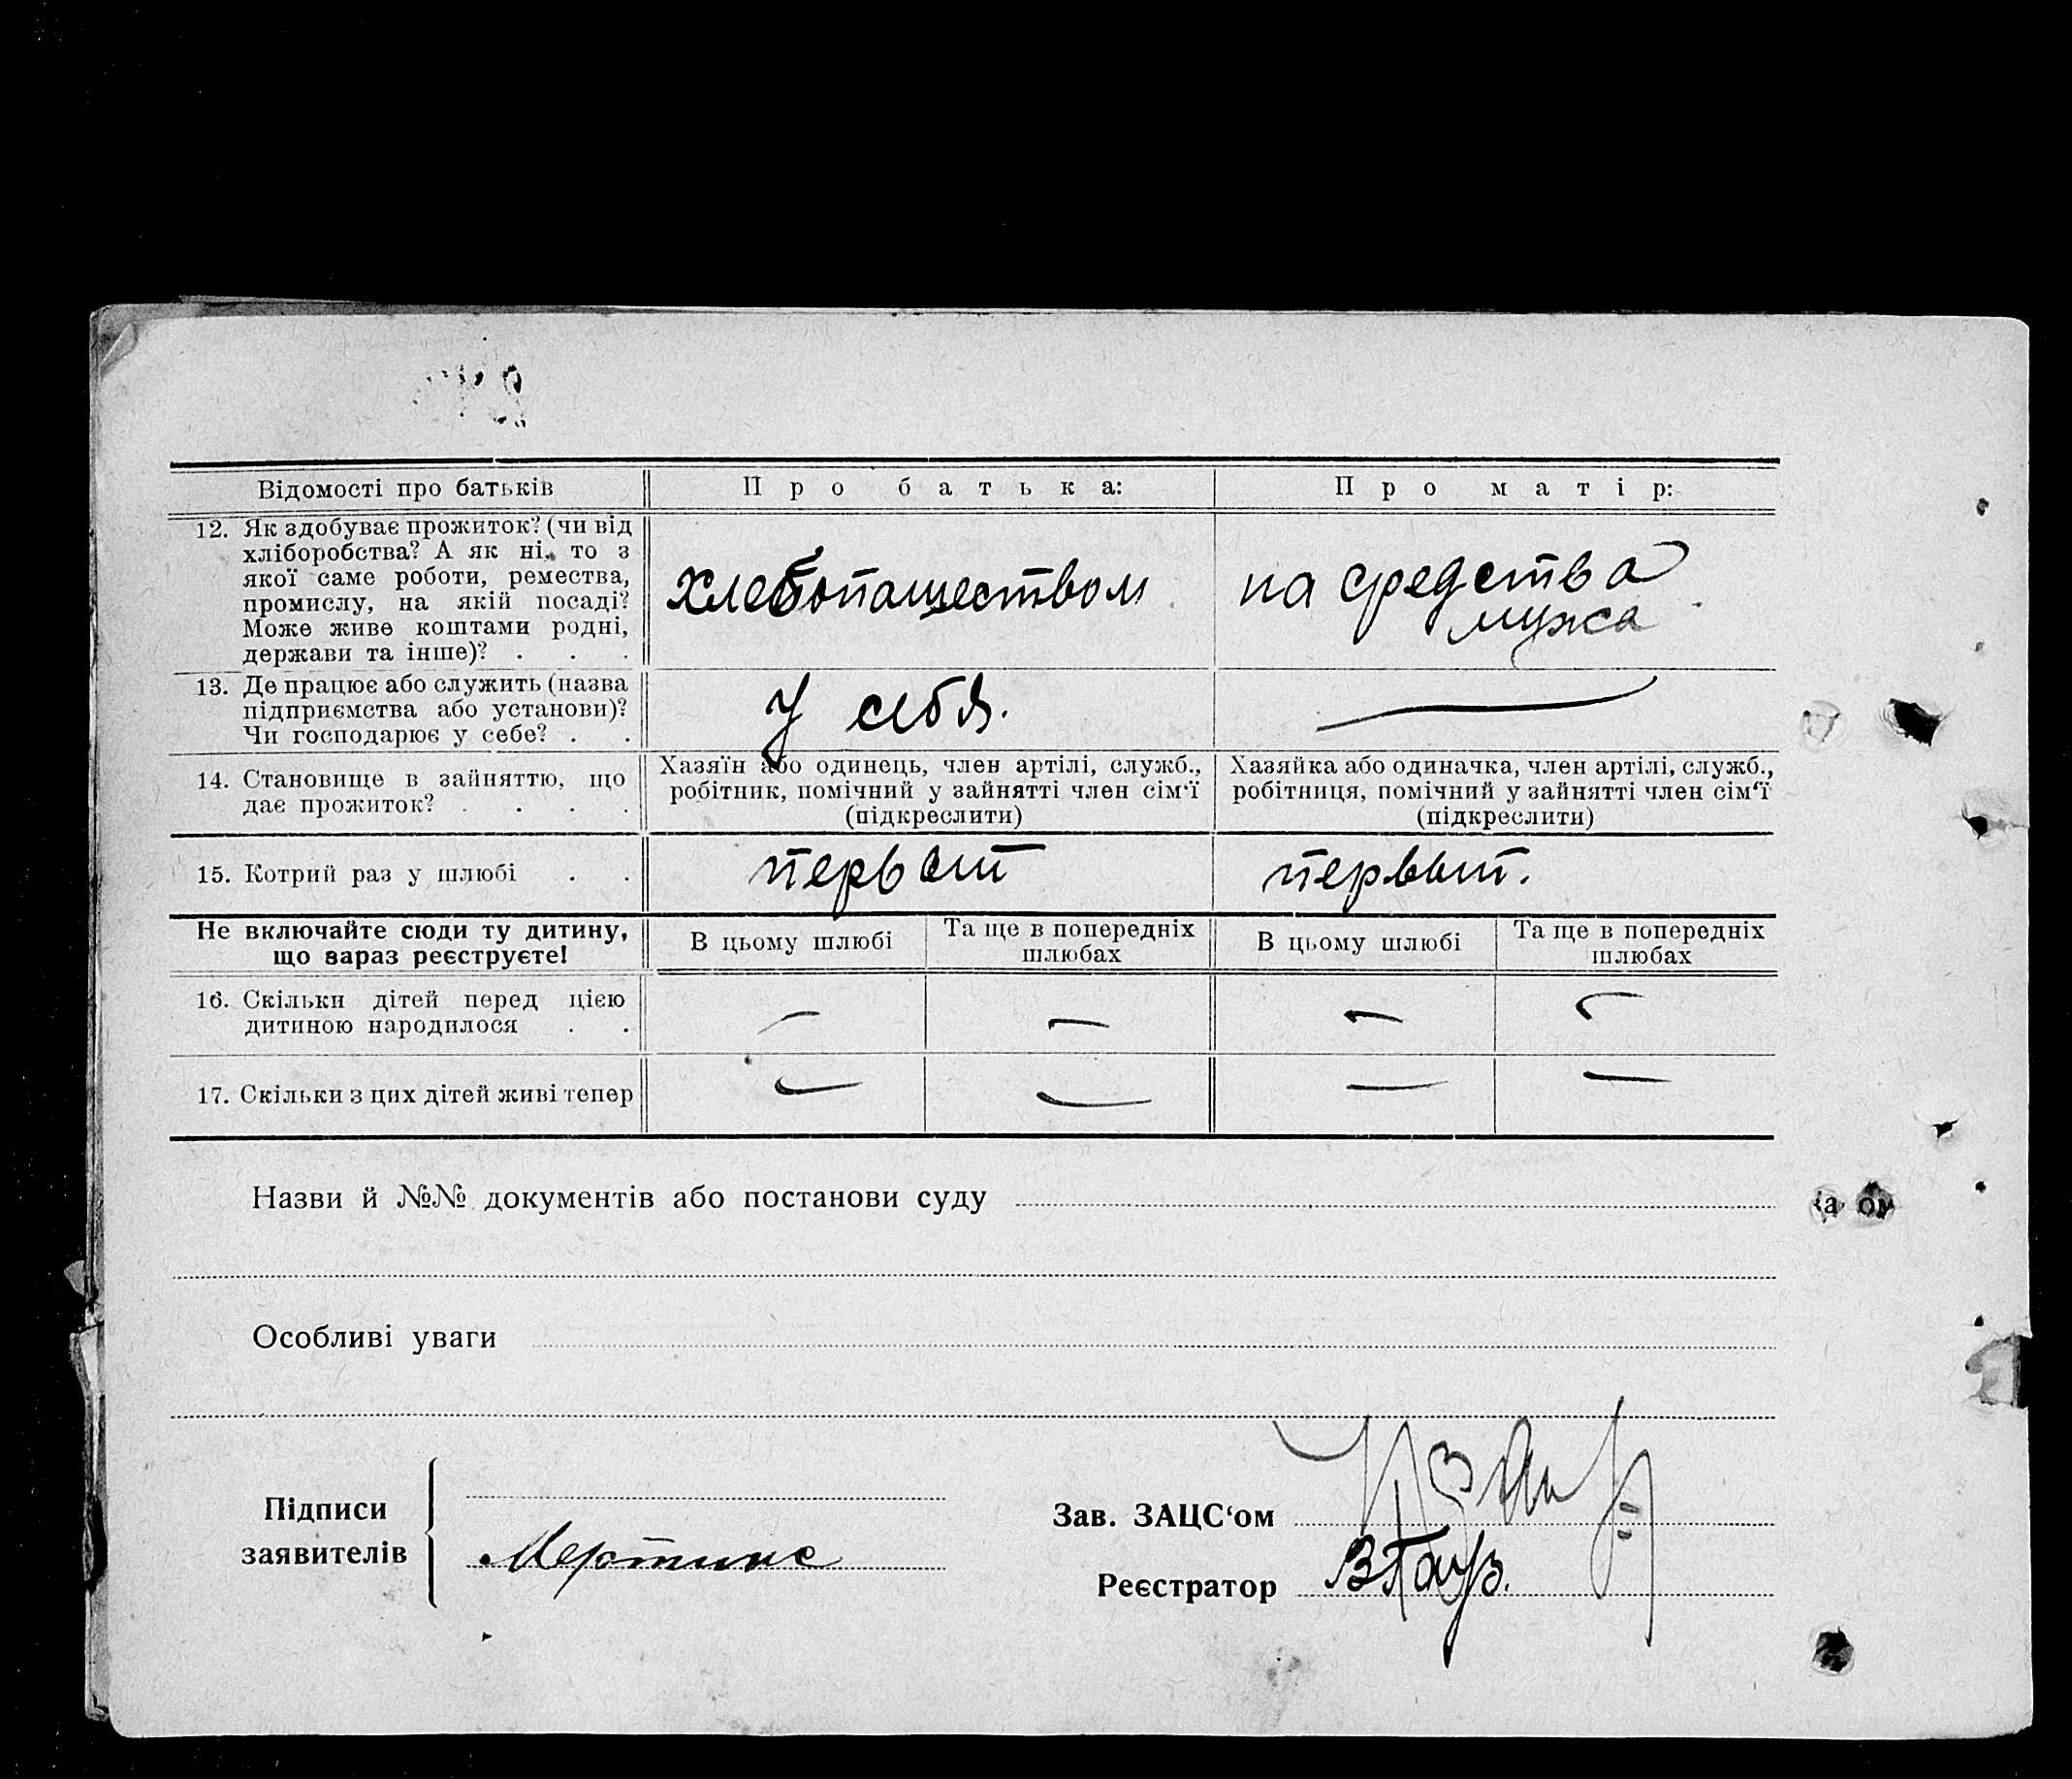 Відомості про батьків
Про батька:
Про матір:
12. Як здобуває прожиток? (чи від
хліборобства? А як ні, то з
якої саме роботи, ремества,
промислу, на якій посаді?
Може живе коштами родні,
держави та інше)? . . .
хлебопашеством
на средства
мужа
13. Де працює або служить (назва
підприємства або установи)?
Чи господарює у себе? . .
у себя.
14. Становище в зайняттю, що
дає прожиток? . . . .
Хазяїн або одинець, член артілі, служб.,
робітник, помічний у зайнятті член сім‘ї
(підкреслити)
Хазяйка або одиначка, член артілі, служб.,
робітниця, помічний у зайнятті член сім‘ї
(підкреслити)
15. Котрий раз у шлюбі . .
первый
первый.
Не включайте сюди ту дитину,
що зараз реєструєте!
В цьому шлюбі
Та ще в попередніх
шлюбах
В цьому шлюбі
Та ще в попередніх
шлюбах
16. Скільки дітей перед цією
дитиною народилося . .
— — — —
17. Скільки з цих дітей живі тепер
— — — —
Назви й №№ документів або постанови суду
Особливі уваги
Підписи
заявителів
Мертинс
Зав. ЗАЦС‘ом
Реєстратор